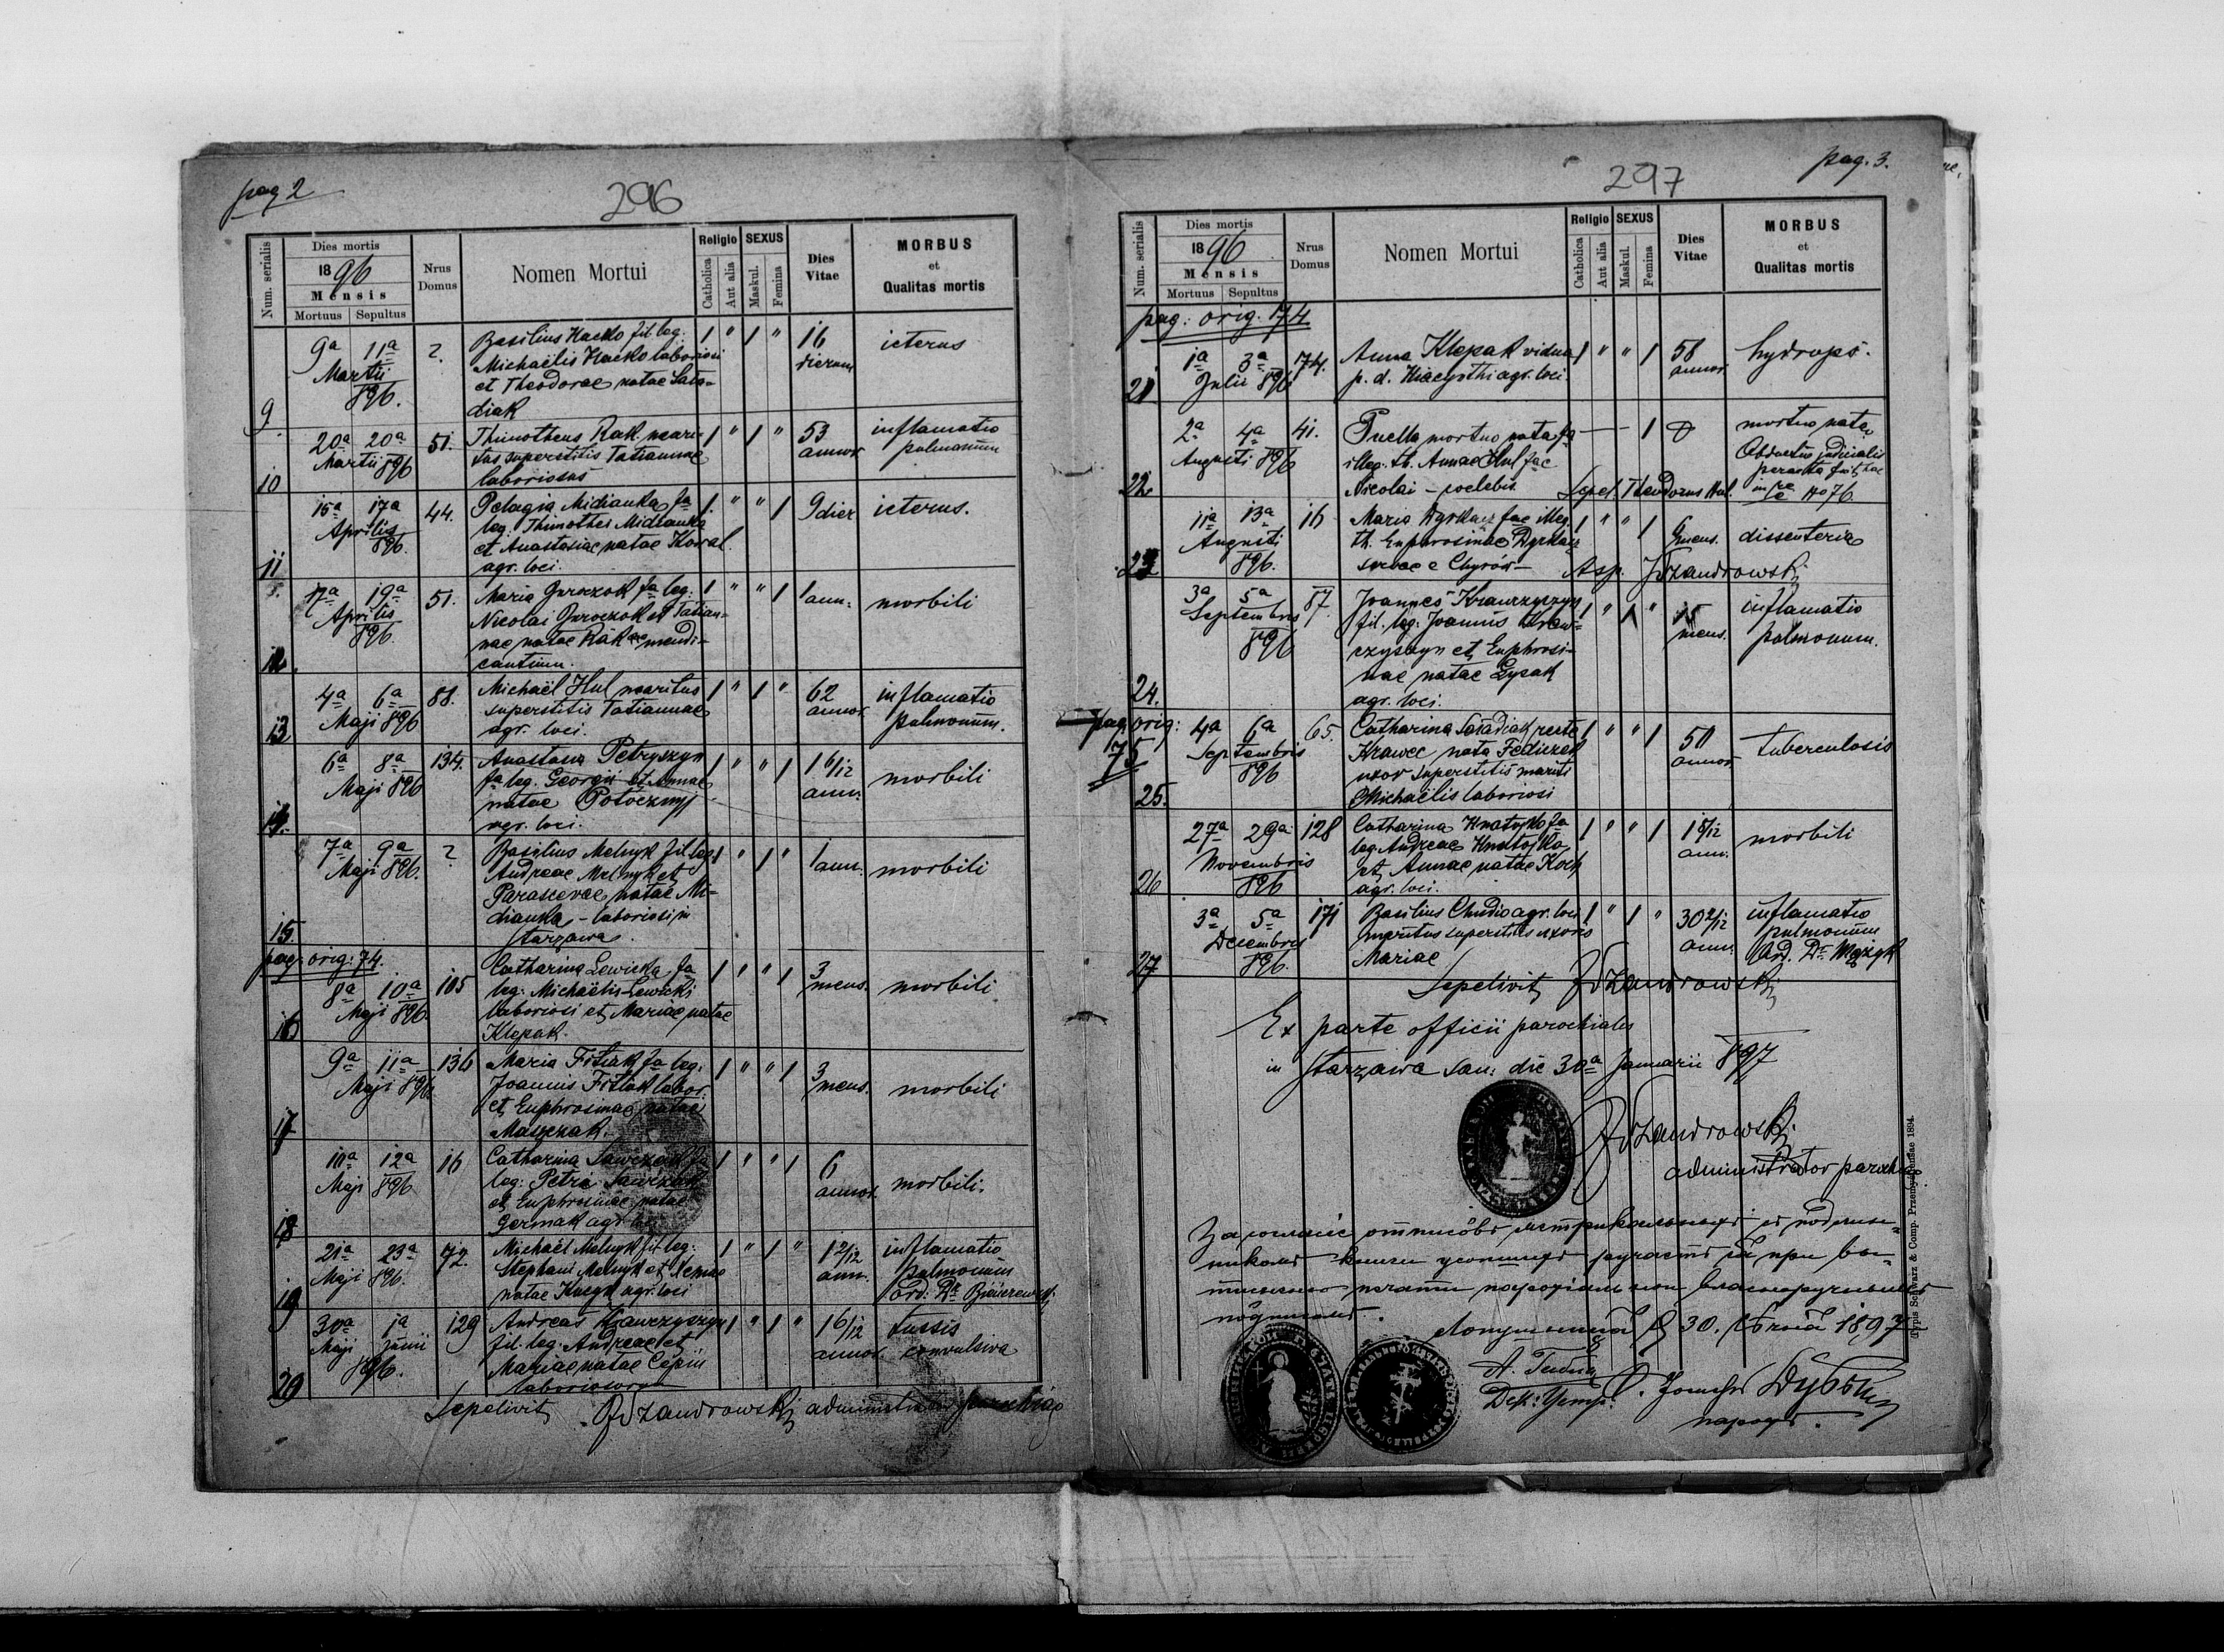 pag 2
296
Num. serialis
Dies mortis
1896
Mensis
Mortuus Sepultus
Nrus Domus
Nomen Mortui
Religio
Catholica
Aut alia
SEXUS
Maskul.
Femina
Dies Vitae
MORBUS
et
Qualitas mortis
9 9a 11a Martii 896. ? 1 " 1 " 16 dierum icterus
Basilius Hacko fil. leg.
Michaëlis Hacko laboriosi
et Theodorae natae Sata-
diak
10 20a 20a Martii 896 51. 1 " 1 " 53 annor inflamatio pulmonum
Thimotheus Rak mari-
tus superstitis Tatiannae
laboriosus
11 15a 17a Aprilis 896. 44. 1 " " 1 9 dier icterus.
Pelagia Midianka fa
leg. Thimothei Midianka
et Anastasiae natae Kowal
agr. loci.
12. 17a 19a Aprilis 896. 51. 1 " " 1 1 ann. morbili
Maria Gvoczok fa leg.
Nicolai Gvoczok et Tatian-
nae natae Rak mendi-
cantium.
13 4a 6a Maji 896 88. 1 " 1 " 62 annor. inflamatio pulmonum.
Michaël Hul maritus
superstitis Tatiannae
agr. loci.
14. 6a 8a Maji 896 134. 1 " " 1 1 6/12 ann. morbili
Anastasia Petryszyn
fa leg. Georgii et Annae
natae Potoczny
agr. loci.
15. 7a 9a Maji 896. ? 1 " 1 " 1 ann. morbili
Basilius Melnyk fil leg.
Andreae Melnyk et
Parascevae natae Mi-
dianka - laboriosi in
Starzawa.
pag: orig: 74.
16 8a 10a Maji 896. 105 1 " " 1 3 mens. morbili
Catharina Lewicka fa
leg: Michaëlis Lewicki
laboriosi et Mariae natae
Klepak.
17 9a 11a Maji 896. 136 1 " " 1 3 mens. morbili
Maria Fitiak fa leg.
Joannis Fitiak labor.
et Euphrosinae natae
Maszczak.
18 10a 12a Maji 896 16 1 " " 1 6 annor. morbili.
Catharina Sawczak fa
leg: Petri Sawczak
et Euphrosinae natae
Germak agr. loci
19 21a 23a Maji 896. 72. 1 " 1 " 1 2/12 ann. inflamatio pulmonum
Michaël Melnyk fil leg:
Stephani Melnyk et
natae agr. loci
20 30a Maji 1a Junii 896. 129 1 " 1 " 1 6/12 annor. tussis convulsiva
Andreas Krawczyszyn
fil. leg. Andreae et
Mariae natae
laboriosorum
Sepelivit JDzandrowskij administrator parochiae
pag. 3.
297
Num. serialis
Dies mortis
1896
Mensis
Mortuus Sepultus
Nrus Domus
Nomen Mortui
Religio
Catholica
Aut alia
SEXUS
Maskul.
Femina
Dies Vitae
MORBUS
et
Qualitas mortis
pag: orig. 174.
21 1a 3a Julii 896 74. 1 " " 1 58 annor. hydrops.
Anna Klepak vidua
p. d. Hiacynthi agr. loci.
22 2a 4a Augusti 896 41. 1 mortuo nata
Puella mortuo nata fa
illeg. th. Annae Hul fae
Nicolai - coelebis
Sepel. Theodorus Hul.
Obductio judicialis
peracta fuit hac
in re No 76.
23 11a 13a Augusti 896. 16 1 " " 1 6 mens. dissenteria
Maria Dyrkacz fae illeg.
th. Euphrosinae Dyrkacz
servae e Chyrów
Asp. JDzandrowskij
24. 3a 5a Septembris 896 87. 1 " 1 " 15 mens. inflamatio pulmonum.
Joannes Krawczyszyn
fil. leg: Joannis Kraw-
czyszyn et Euphrosi-
nae natae Lysak
agr. loci.
pag. orig: 75
25. 4a 6a Septembris 896 65. 1 " " 1 50 annor. tuberculosis
Catharina Satadiak recte
Krawec nata Fediczak
uxor superstitis mariti
Michaëlis laboriosi
26 27a 29a Novembris 896 128 1 " " 1 1 8/12 ann. morbili
Catharina Hnatojko fa
leg. Andreae Hnatojko
et Annae natae Koch
agr. loci.
27 3a 5a Decembris 896. 171 1 " 1 " 30 2/12 ann. inflamatio pulmonum
Ord. Dr
Basilius Chudio agr. loci
maritus superstitis uxoris
Mariae
Sepelivit JDzandrowskij
Ex parte officii parochialis
in Starzawa San: die 30a Januarii 897
JDzandrowskij
administrator parochiae
За согласіе отписôвъ метрикальныхъ съ
книги усопшихъ ручаетъ ся при вы-
тисненю печати парохіальнои власноручнымъ
пôдписомъ.
30. 1897
парохъ.
Typis Schwarz & Comp. Przemyśl 1894.